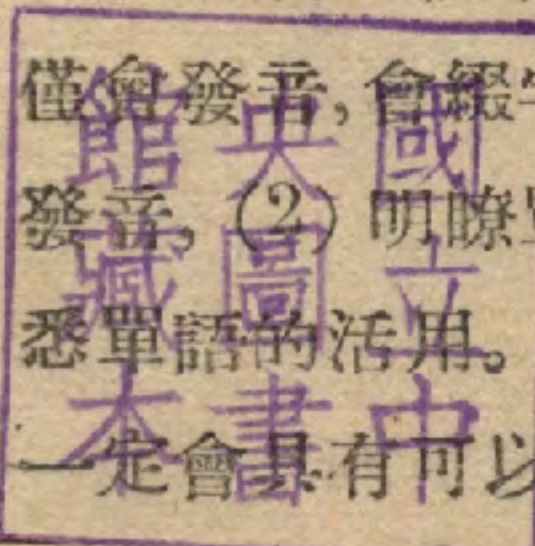 僅會發音,會綴字
發音, (2) 明瞭
悉單語的活用。
一定會具有可以
國立中
央圖書
館藏本